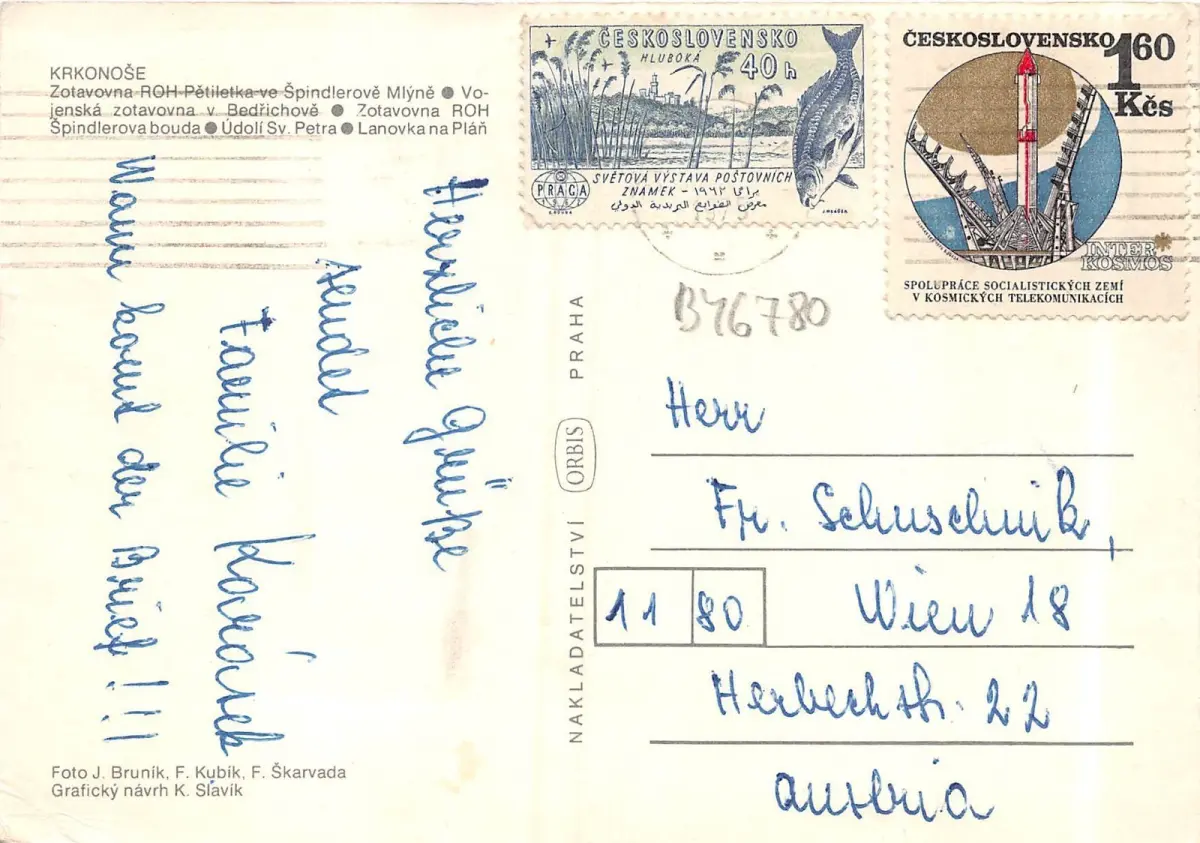 KRKONOŠE
Zotavovna ROH Pětiletka ve Špindlerově Mlýně ● Vo-
jenská zotavovna v Bedřichově ● Zotavovna ROH
Špindlerova bouda ● Údolí Sv. Petra ● Lanovka na Pláň
Herzliche Grüße
sendet
Familie Karásek
Wann kommt der Brief!!!
Foto J. Bruník, F. Kubík, F. Škarvada
Grafický návrh K. Slavík
NAKLADATELSTVÍ ORBIS PRAHA
ČESKOSLOVENSKO
HLUBOKÁ
40 h
SVĚTOVÁ VÝSTAVA POŠTOVNÍCH
ZNÁMEK - ١٩٦٢ براجا
معرض الطوابع البريدية الدولي
PRAGA
1962
ČESKOSLOVENSKO
1 60
Kčs
INTER
KOSMOS
SPOLUPRÁCE SOCIALISTICKÝCH ZEMÍ
V KOSMICKÝCH TELEKOMUNIKACÍCH
B46780
Herr
Fr. Schuschnik,
1180 Wien 18
Herbeckstr. 22
Austria